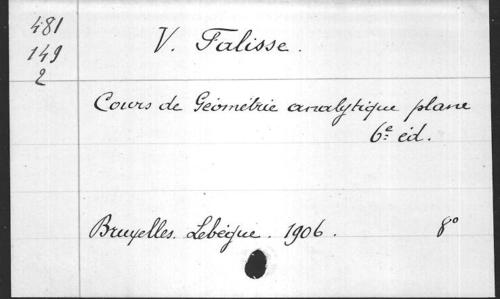 481
149
2
V. Falisse.
Cours de Géométrie analytique plane
6e éd.
Bruxelles. Lebègue. 1906. 8°